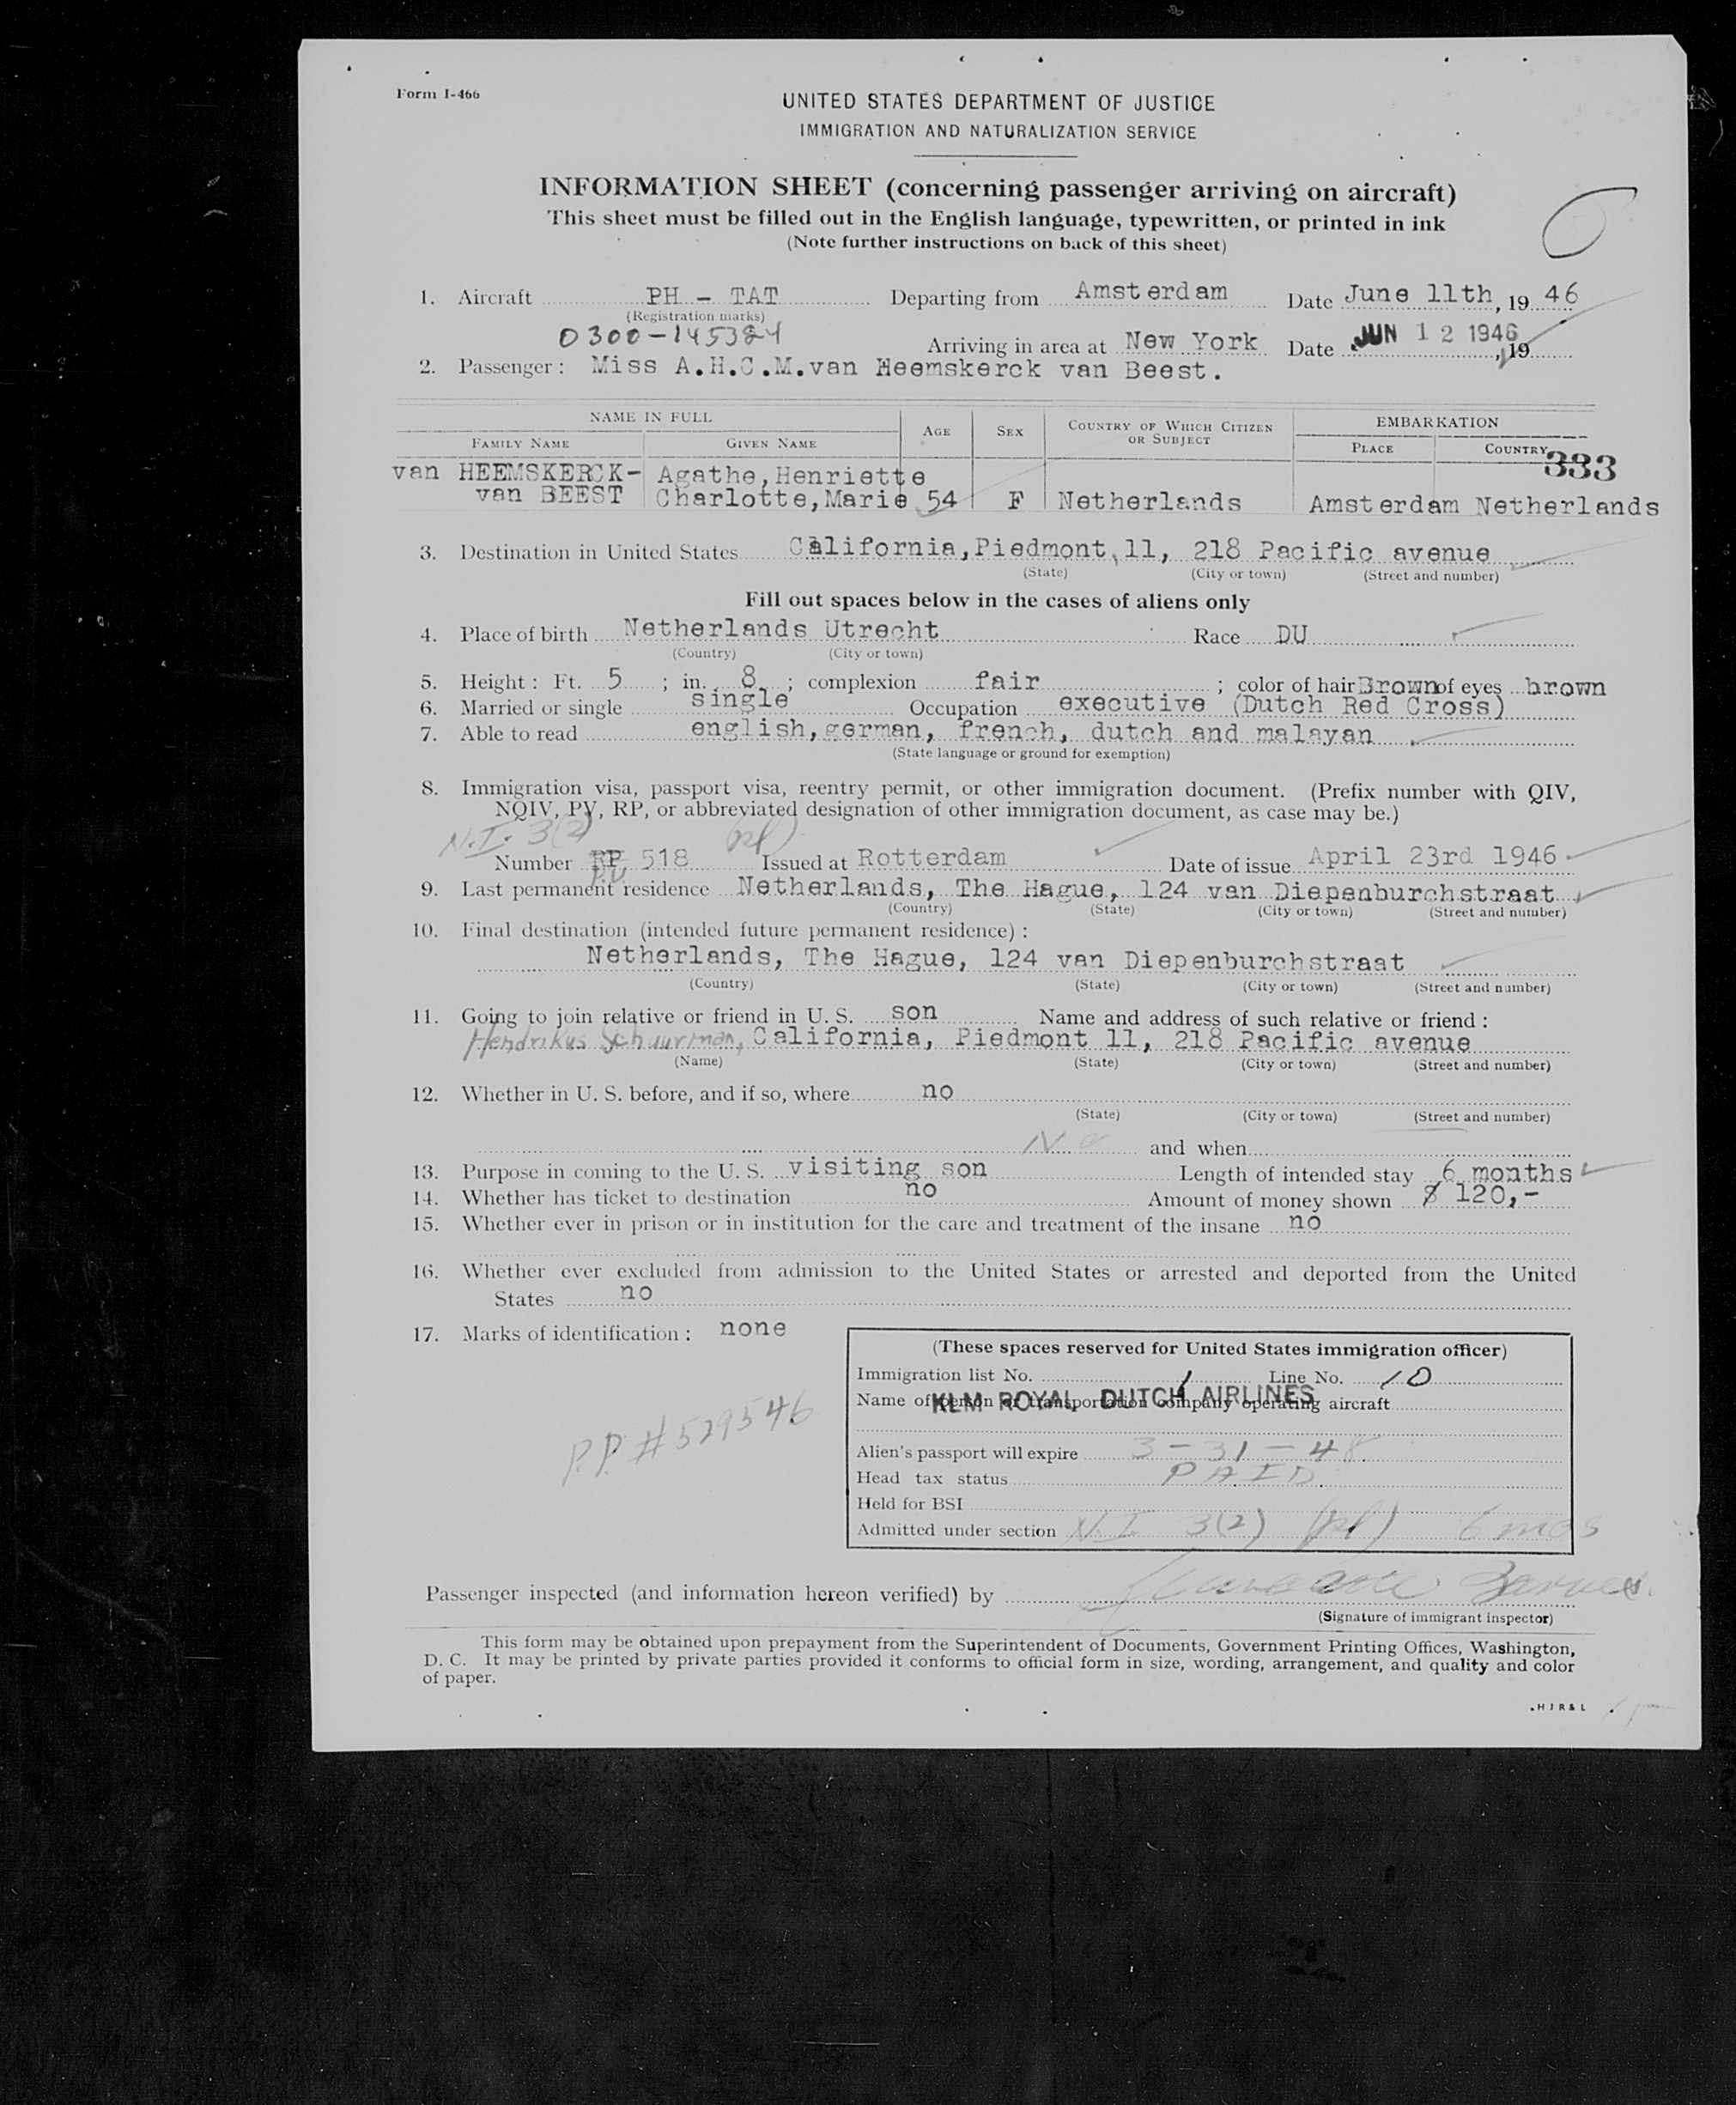 Form I-466
UNITED STATES DEPARTMENT OF JUSTICE
IMMIGRATION AND NATURALIZATION SERVICE
INFORMATION SHEET (concerning passenger arriving on aircraft)
This sheet must be filled out in the English language, typewritten, or printed in ink
(Note further instructions on back of this sheet)
1. Aircraft PH - TAT Departing from Amsterdam Date June 11th, 19 46
(Registration marks)
0300-145324 Arriving in area at New York Date JUN 12 1946, 19
2. Passenger: Miss A.H.C.M.van Heemskerck van Beest.
NAME IN FULL AGE SEX COUNTRY OF WHICH CITIZEN OR SUBJECT EMBARKATION
FAMILY NAME GIVEN NAME PLACE COUNTRY
333
van HEEMSKERCK- Agathe,Henriette
van BEEST Charlotte,Marie 54 F Netherlands Amsterdam Netherlands
3. Destination in United States California,Piedmont,11, 218 Pacific avenue
(State) (City or town) (Street and number)
Fill out spaces below in the cases of aliens only
4. Place of birth Netherlands Utrecht Race DU
(Country) (City or town)
5. Height: Ft. 5 ; in. 8 ; complexion fair ; color of hair Brown of eyes brown
6. Married or single single Occupation executive (Dutch Red Cross)
7. Able to read english,german, french, dutch and malayan
(State language or ground for exemption)
8. Immigration visa, passport visa, reentry permit, or other immigration document. (Prefix number with QIV,
NQIV, PV, RP, or abbreviated designation of other immigration document, as case may be.)
N.I. 3(2)
Number RP 518 Issued at Rotterdam Date of issue April 23rd 1946
P.V.
9. Last permanent residence Netherlands, The Hague, 124 van Diepenburchstraat
(Country) (State) (City or town) (Street and number)
10. Final destination (intended future permanent residence):
Netherlands, The Hague, 124 van Diepenburchstraat
(Country) (State) (City or town) (Street and number)
11. Going to join relative or friend in U. S. son Name and address of such relative or friend:
Hendrikus Schuurman, California, Piedmont 11, 218 Pacific avenue
(Name) (State) (City or town) (Street and number)
12. Whether in U. S. before, and if so, where no
(State) (City or town) (Street and number)
No and when
13. Purpose in coming to the U. S. visiting son Length of intended stay 6 months
14. Whether has ticket to destination no Amount of money shown $ 120,-
15. Whether ever in prison or in institution for the care and treatment of the insane no
16. Whether ever excluded from admission to the United States or arrested and deported from the United
States no
17. Marks of identification: none
P.P. #529546
(These spaces reserved for United States immigration officer)
Immigration list No. 1 Line No. 10
Name of person or transportation company operating aircraft KLM ROYAL DUTCH AIRLINES
Alien's passport will expire 3-31-48
Head tax status PAID
Held for BSI
Admitted under section N.I. 3(2) 6 mos
Passenger inspected (and information hereon verified) by
(Signature of immigrant inspector)
This form may be obtained upon prepayment from the Superintendent of Documents, Government Printing Offices, Washington,
D. C. It may be printed by private parties provided it conforms to official form in size, wording, arrangement, and quality and color
of paper.
HJR&L